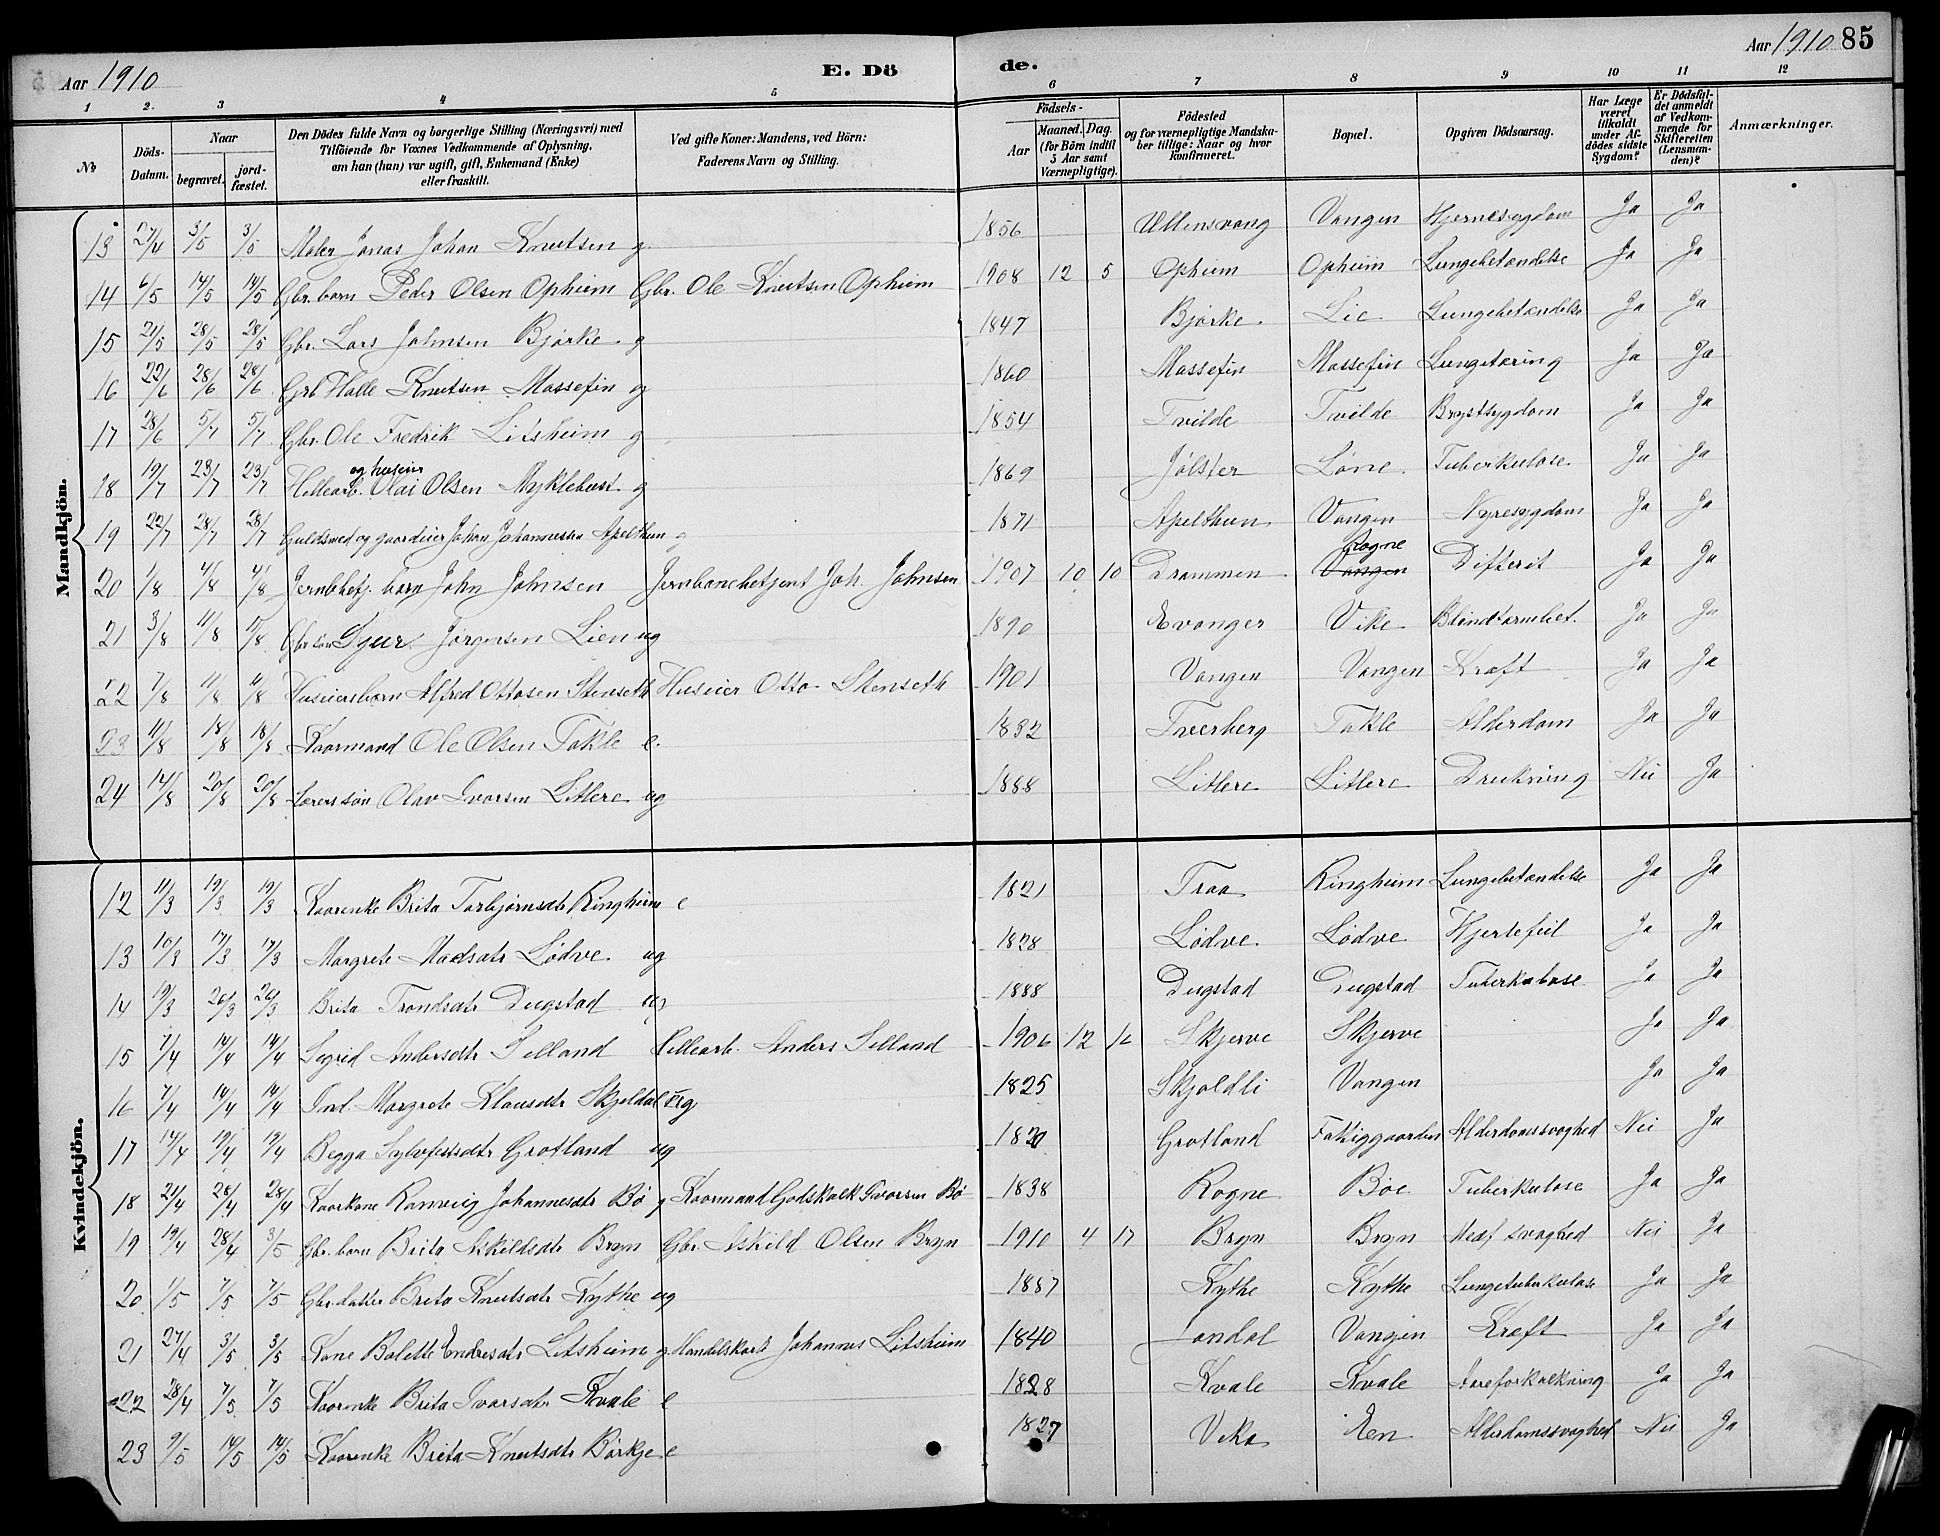 Aar 1910 E. Dö de. Aar 1910 85
1 2. 3 4 5 6 7 8 9 10 11 12
No Döds-Datum. Naar begravet. jordfæstet. Den Dödes fulde Navn og borgerlige Stilling (Næringsvei) med Tilföiende for Voxnes Vedkommende af Oplysning, om han (hun) var ugift, gift, Enkemand (Enke) eller fraskilt. Ved gifte Koner: Mandens, ved Börn: Faderens Navn og Stilling. Födsels- Aar Maaned. Dag. (for Börn indtil 5 Aar samt Værnepligtige). Födested og for værnepligtige Mandskaber tillige: Naar og hvor konfirmeret. Bopæl. Opgiven Dödsaarsag. Har Læge været tilkaldt under Afdödes sidste Sygdom? Er Dödsfaldet anmeldt af Vedkommende for Skifteretten (Lensmanden)? Anmærkninger.
Mandkjön.
13 27/4 3/5 3/5 Maler Jonas Johan Knutsen g. 1856 Ullensvang Vangen Hjernesygdom Ja Ja
14 6/5 14/5 14/5 Gbr. barn Peder Olsen Opheim Gbr. Ole Knutsen Opheim 1908 12 5 Opheim Opheim Lungebetændelse Ja Ja
15 21/5 28/5 28/5 Gbr. Lars Johnsen Bjørke g 1847 Bjørke Lie Lungebetændelse Ja Ja
16 22/6 28/6 28/6 Grb Halle Knutsen Massefin g 1860 Massefin Massefin Lungetæring Ja Ja
17 28/6 5/7 5/7 Gbr. Ole Fredrik Litsheim g 1854 Tvilde Tvilde Brystsygdom Ja Ja
18 19/7 23/7 23/7 Hellearb. og huseier Olai Olsen Myklebust g 1869 Jølster Løne Tuberkulose Ja Ja
19 22/7 28/7 28/7 Guldsmed og gaardeier Johan Johannessen Apelthun g 1871 Apelthun Vangen Nyresygdom Ja Ja
20 1/8 4/8 4/8 Jernbbetj. barn John Johnsen Jernbanebetjent Joh. Johnsen 1907 10 10 Drammen Vangen Rogne Difterit Ja Ja
21 3/8 11/8 11/8 Gbr. søn Sjur Jørgensen Lien ug 1890 Evanger Vike Blindtarmbet. Ja Ja
22 7/8 11/8 11/8 Huseiersbarn Alfred Ottosen Stenseth Huseier Otto Stenseth 1901 Vangen Vangen Kræft Ja Ja
23 11/8 18/8 18/8 Kaarmand Ole Olsen Takle e. 1832 Tverberg Takle Alderdom Ja Ja
24 14/8 20/8 20/8 Lærers søn Olav Ivarsen Litlere ug 1888 Litlere Litlere Drukning Nei Ja
Kvindekjön.
12 11/3 19/3 19/3 Kaarenke Brita Torbjørnsdtr Ringheim e 1821 Traa Ringheim Lungebetændelse Ja Ja
13 10/3 17/3 17/3 Margrete Madsdtr Lødve ug 1828 Lødve Lødve Hjertefeil Ja Ja
14 19/3 26/3 26/3 Brita Trondsdtr Dugstad ug 1888 Dugstad Dugstad Tuberkulose Ja Ja
15 7/4 14/4 14/4 Sigrid Andersdtr Selland Hellearb. Anders Selland 1906 12 16 Skjerve Skjerve Ja Ja
16 7/4 14/4 14/4 Margrete Klausdtr Skjeldal ug 1825 Skjoldli Vangen Ja Ja
17 14/4 19/4 19/4 Begga Sylvfestsdtr Grotland ug 1820 Grotland Fattiggaarden Alderdomssvaghed Nei Ja
18 21/4 28/4 28/4 Kaarkone Ranveig Johannesdtr Bø g Kaarmand Godskalk Ivarsen Bø 1838 Rogne Bøe Tuberkulose Ja Ja
19 19/4 28/4 3/5 Gbr. barn Brita Askildsdtr Bryn Gbr. Askild Olsen Bryn 1910 4 17 Bryn Bryn Medf. svaghed Nei Ja
20 1/5 7/5 7/5 Gbr. datter Brita Knutsdtr Kythe ug 1887 Kythe Kythe Lungetuberkulose Ja Ja
21 27/4 3/5 3/5 Kone Bolette Endresdtr Litsheim g. Handelskarl Johannes Litsheim 1840 Vangen Kræft Ja Ja
22 28/4 7/5 7/5 Kaarenke Brita Ivarsdtr Kvale e 1828 Kvale Kvale Aareforkalkning Ja Ja
23 9/5 14/5 14/5 Kaarenke Brita Knutsdtr Børkje e 1827 Veka Een Alderdomssvaghed Nei Ja